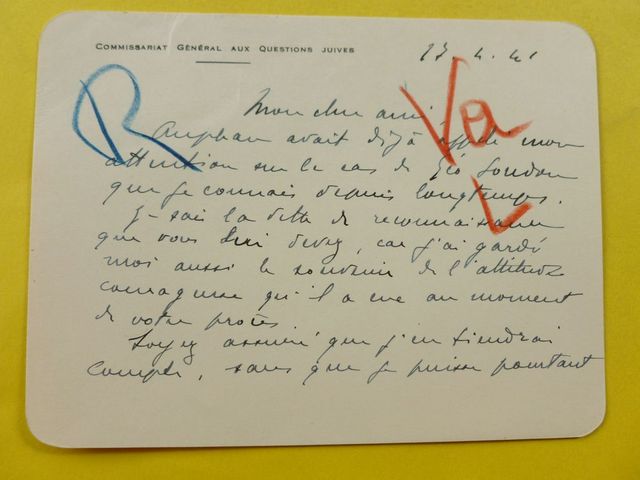 COMMISSARIAT GÉNÉRAL AUX QUESTIONS JUIVES
27. 4. 41
R
Va
L
Mon cher ami
Auphan avait déjà appelé mon
attention sur le cas de Géo London
que je connais depuis longtemps.
Je sais la dette de reconnaissance
que vous lui devez, car j'ai gardé
moi aussi le souvenir de l'attitude
courageuse qu'il a eue au moment
de votre procès.
Soyez assuré que j'en tiendrai
compte, sans que je puisse pourtant